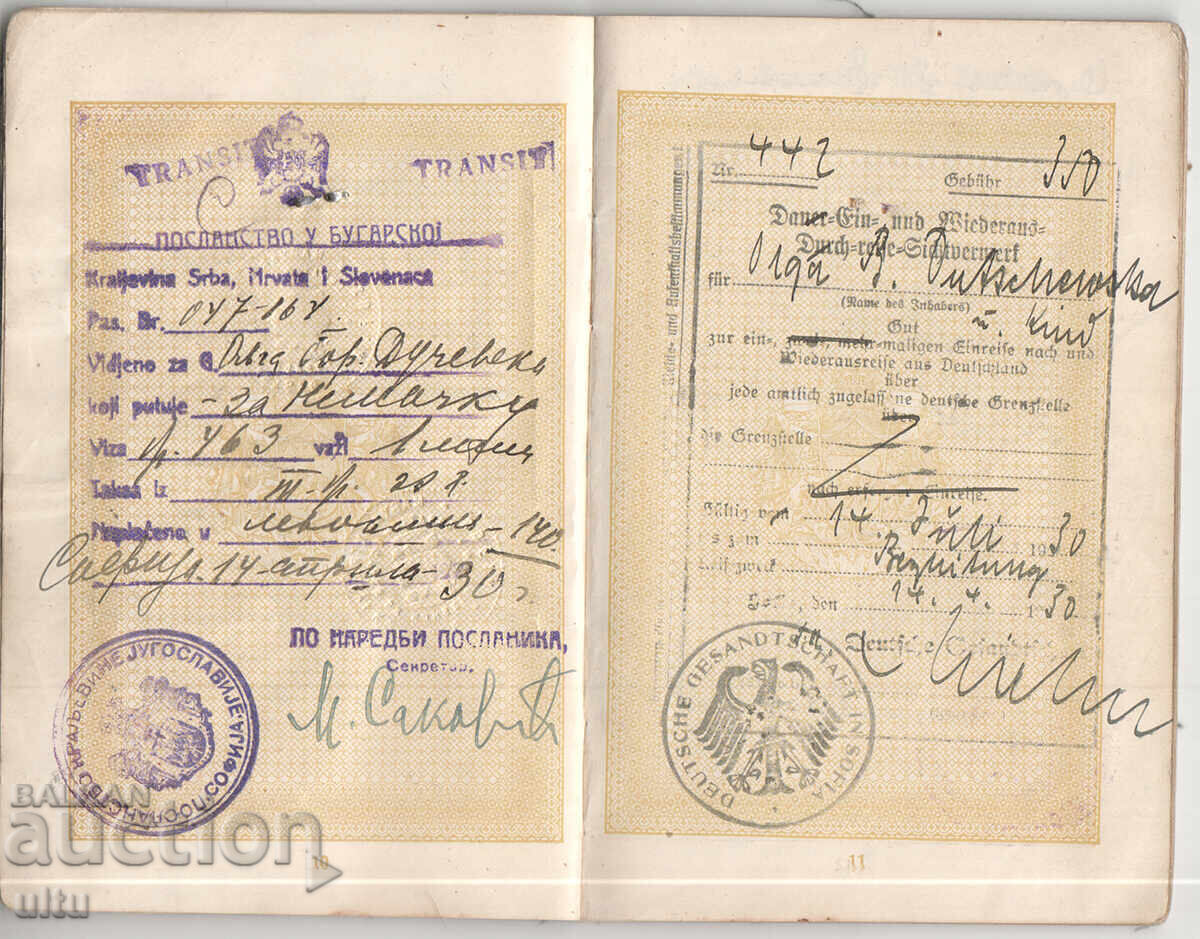 TRANSIT TRANSIT
ПОСЛАНСТВО У БУГАРСКОЈ
Kraljevina Srba, Hrvata i Slovenaca
Pas. Br. 047-164
Vidjeno za G. Олга Бор. Дучевска
koji putuje - за Немачку
Viza бр. 463 važi 1 месец
Taksa iz т. бр. 20 8.
Naplaćeno u левовима - 140.
Софија, 14 априла - 1930 г.
ПО НАРЕДБИ ПОСЛАНИКА,
Секретар,
М. Саковић
ПОСЛАНСТВО КРАЉЕВИНЕ ЈУГОСЛАВИЈЕ
10
Nr. 442 Gebühr 350
Dauer-Ein- und Wiederaus-
Durch-reise-Sichtvermerk
für Olga B. Dutschewska
(Name des Inhabers) u. Kind
Gut
zur ein-, mehr-maligen Einreise nach und
Wiederausreise aus Deutschland
über
jede amtlich zugelassene deutsche Grenzstelle
über
die Grenzstelle
nach erfolgter Einreise.
Gültig vom 14
bis zum 14. Juli 1930
Reisezweck Begleitung
Sofia, den 14. 4. 1930
Deutsche Gesandtschaft
DEUTSCHE GESANDTSCHAFT IN SOFIA
11
BALKAN
auction
ultu